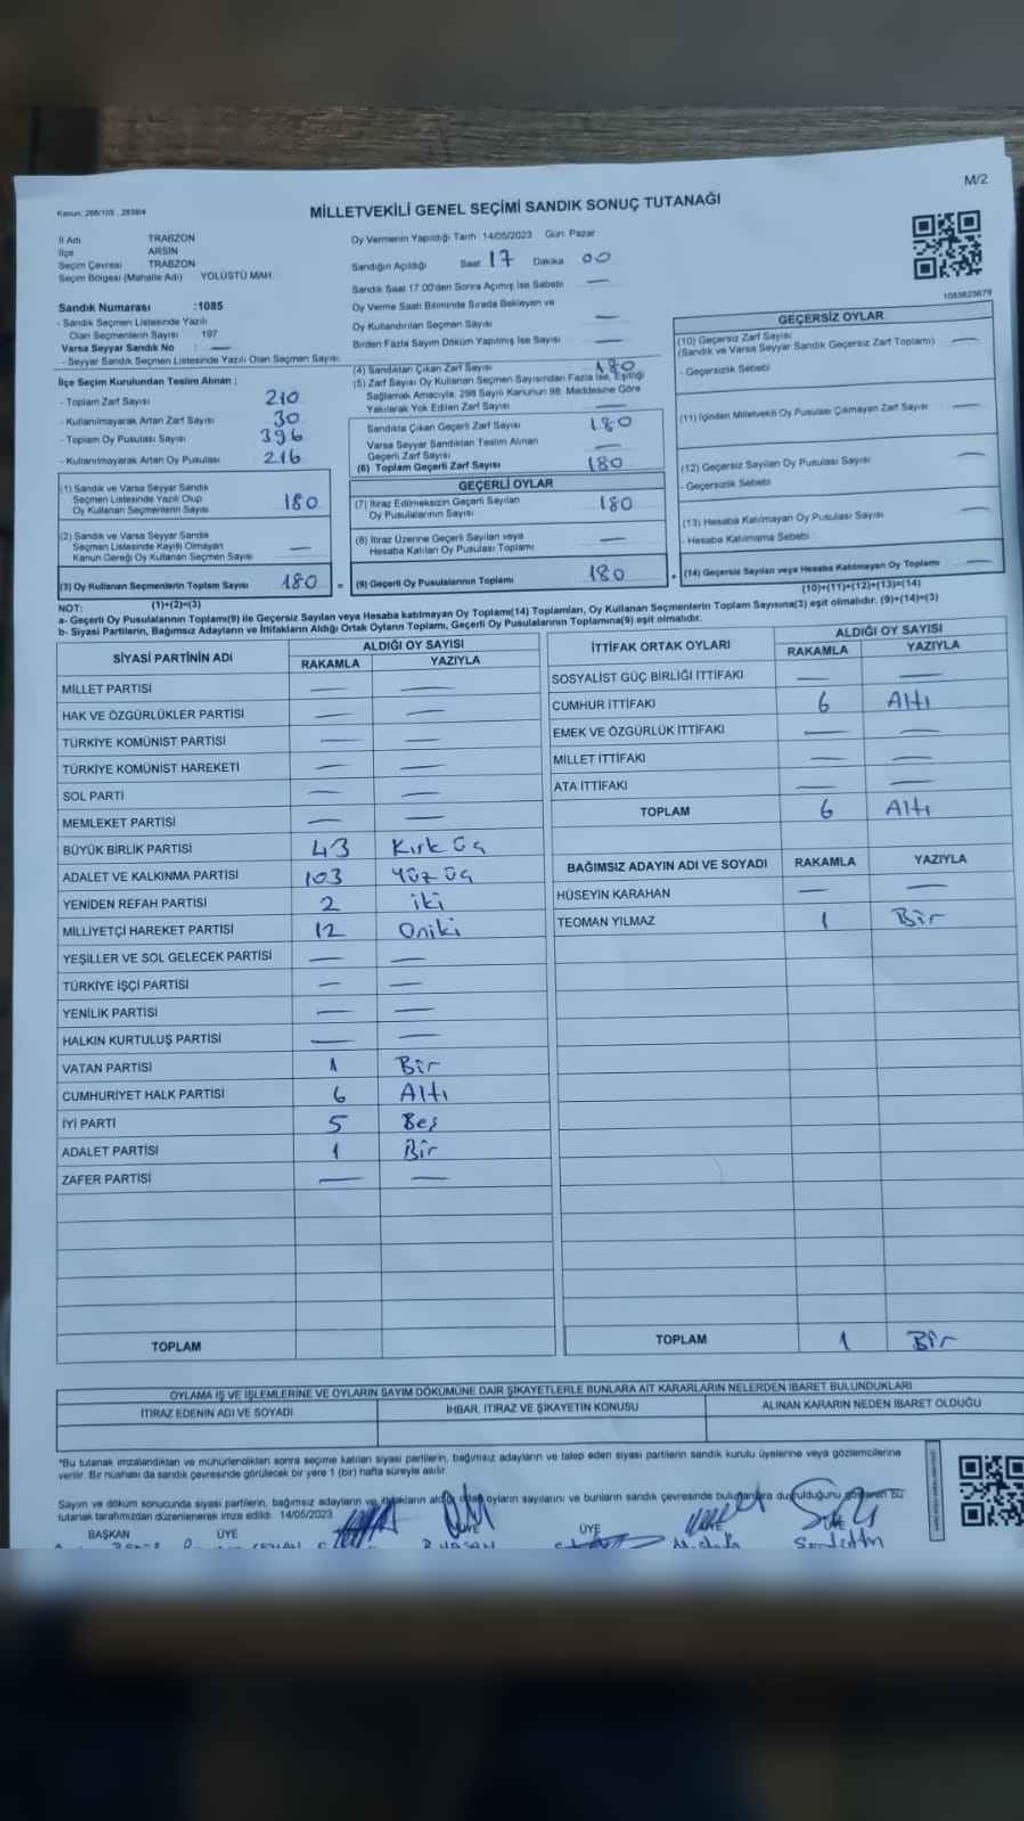 M/2
MİLLETVEKİLİ GENEL SEÇİMİ SANDIK SONUÇ TUTANAĞI
İl Adı TRABZON
İlçe ARSİN
Seçim Çevresi TRABZON
Seçim Bölgesi (Mahalle Adı) YOLÜSTÜ MAH.
Sandık Numarası :1085
- Sandık Seçmen Listesinde Yazılı
Olan Seçmenlerin Sayısı 197
Varsa Seyyar Sandık No : —
- Seyyar Sandık Seçmen Listesinde Yazılı Olan Seçmen Sayısı:
Oy Vermenin Yapıldığı Tarih 14/05/2023 Gün: Pazar
Sandığın Açıldığı Saat 17 Dakika 00
Sandık Saat 17.00'den Sonra Açılmış İse Sebebi —
Oy Verme Saati Bitiminde Sırada Bekleyen ve
Oy Kullandırılan Seçmen Sayısı —
Birden Fazla Sayım Döküm Yapılmış İse Sayısı —
İlçe Seçim Kurulundan Teslim Alınan :
- Toplam Zarf Sayısı 210
- Kullanılmayarak Artan Zarf Sayısı 30
- Toplam Oy Pusulası Sayısı 396
- Kullanılmayarak Artan Oy Pusulası 216
(1) Sandık ve Varsa Seyyar Sandık
Seçmen Listesinde Yazılı Olup
Oy Kullanan Seçmenlerin Sayısı 180
(2) Sandık ve Varsa Seyyar Sandık
Seçmen Listesinde Kayıtlı Olmayan
Kanun Gereği Oy Kullanan Seçmen Sayısı —
(3) Oy Kullanan Seçmenlerin Toplam Sayısı 180
(1)+(2)=(3)
(4) Sandıktan Çıkan Zarf Sayısı 180
(5) Zarf Sayısı Oy Kullanan Seçmen Sayısından Fazla İse, Eşitliği
Sağlamak Amacıyla, 298 Sayılı Kanunun 98. Maddesine Göre
Yakılarak Yok Edilen Zarf Sayısı —
Sandıkta Çıkan Geçerli Zarf Sayısı 180
Varsa Seyyar Sandıktan Teslim Alınan
Geçerli Zarf Sayısı —
(6) Toplam Geçerli Zarf Sayısı 180
GEÇERLİ OYLAR
(7) İtiraz Edilmeksizin Geçerli Sayılan
Oy Pusulalarının Sayısı 180
(8) İtiraz Üzerine Geçerli Sayılan veya
Hesaba Katılan Oy Pusulası Toplamı —
= (9) Geçerli Oy Pusulalarının Toplamı 180
GEÇERSİZ OYLAR
(10) Geçersiz Zarf Sayısı
(Sandık ve Varsa Seyyar Sandık Geçersiz Zarf Toplamı) —
- Geçersizlik Sebebi
(11) İçinden Milletvekili Oy Pusulası Çıkmayan Zarf Sayısı —
(12) Geçersiz Sayılan Oy Pusulası Sayısı —
- Geçersizlik Sebebi
(13) Hesaba Katılmayan Oy Pusulası Sayısı —
- Hesaba Katılmama Sebebi
+ (14) Geçersiz Sayılan veya Hesaba Katılmayan Oy Toplamı —
(10)+(11)+(12)+(13)=(14)
NOT:
a- Geçerli Oy Pusulalarının Toplamı(9) ile Geçersiz Sayılan veya Hesaba katılmayan Oy Toplamı(14) Toplamları, Oy Kullanan Seçmenlerin Toplam Sayısına(3) eşit olmalıdır. (9)+(14)=(3)
b- Siyasi Partilerin, Bağımsız Adayların ve İttifakların Aldığı Ortak Oyların Toplamı, Geçerli Oy Pusulalarının Toplamına(9) eşit olmalıdır.
SİYASİ PARTİNİN ADI ALDIĞI OY SAYISI
RAKAMLA YAZIYLA
MİLLET PARTİSİ — —
HAK VE ÖZGÜRLÜKLER PARTİSİ — —
TÜRKİYE KOMÜNİST PARTİSİ — —
TÜRKİYE KOMÜNİST HAREKETİ — —
SOL PARTİ — —
MEMLEKET PARTİSİ — —
BÜYÜK BİRLİK PARTİSİ 43 Kırk üç
ADALET VE KALKINMA PARTİSİ 103 Yüz üç
YENİDEN REFAH PARTİSİ 2 iki
MİLLİYETÇİ HAREKET PARTİSİ 12 Oniki
YEŞİLLER VE SOL GELECEK PARTİSİ — —
TÜRKİYE İŞÇİ PARTİSİ — —
YENİLİK PARTİSİ — —
HALKIN KURTULUŞ PARTİSİ — —
VATAN PARTİSİ 1 Bir
CUMHURİYET HALK PARTİSİ 6 Altı
İYİ PARTİ 5 Beş
ADALET PARTİSİ 1 Bir
ZAFER PARTİSİ — —
TOPLAM
İTTİFAK ORTAK OYLARI ALDIĞI OY SAYISI
RAKAMLA YAZIYLA
SOSYALİST GÜÇ BİRLİĞİ İTTİFAKI — —
CUMHUR İTTİFAKI 6 Altı
EMEK VE ÖZGÜRLÜK İTTİFAKI — —
MİLLET İTTİFAKI — —
ATA İTTİFAKI — —
TOPLAM 6 Altı
BAĞIMSIZ ADAYIN ADI VE SOYADI RAKAMLA YAZIYLA
HÜSEYİN KARAHAN — —
TEOMAN YILMAZ 1 Bir
TOPLAM 1 Bir
OYLAMA İŞ VE İŞLEMLERİNE VE OYLARIN SAYIM DÖKÜMÜNE DAİR ŞİKAYETLERLE BUNLARA AİT KARARLARIN NELERDEN İBARET BULUNDUKLARI
İTİRAZ EDENİN ADI VE SOYADI İHBAR, İTİRAZ VE ŞİKAYETİN KONUSU ALINAN KARARIN NEDEN İBARET OLDUĞU
"Bu tutanak imzalandıktan ve mühürlendikten sonra seçime katılan siyasi partilerin, bağımsız adayların ve talep eden siyasi partilerin sandık kurulu üyelerine veya gözlemcilerine
verilir. Bir nüshası da sandık çevresinde görülecek bir yere 1 (bir) hafta süreyle asılır.
Sayım ve döküm sonucunda siyasi partilerin, bağımsız adayların ve oyların sayılarını ve bunların sandık çevresinde
tutanak tarafımızdan düzenlenerek imza edildi. 14/05/2023
BAŞKAN ÜYE ÜYE